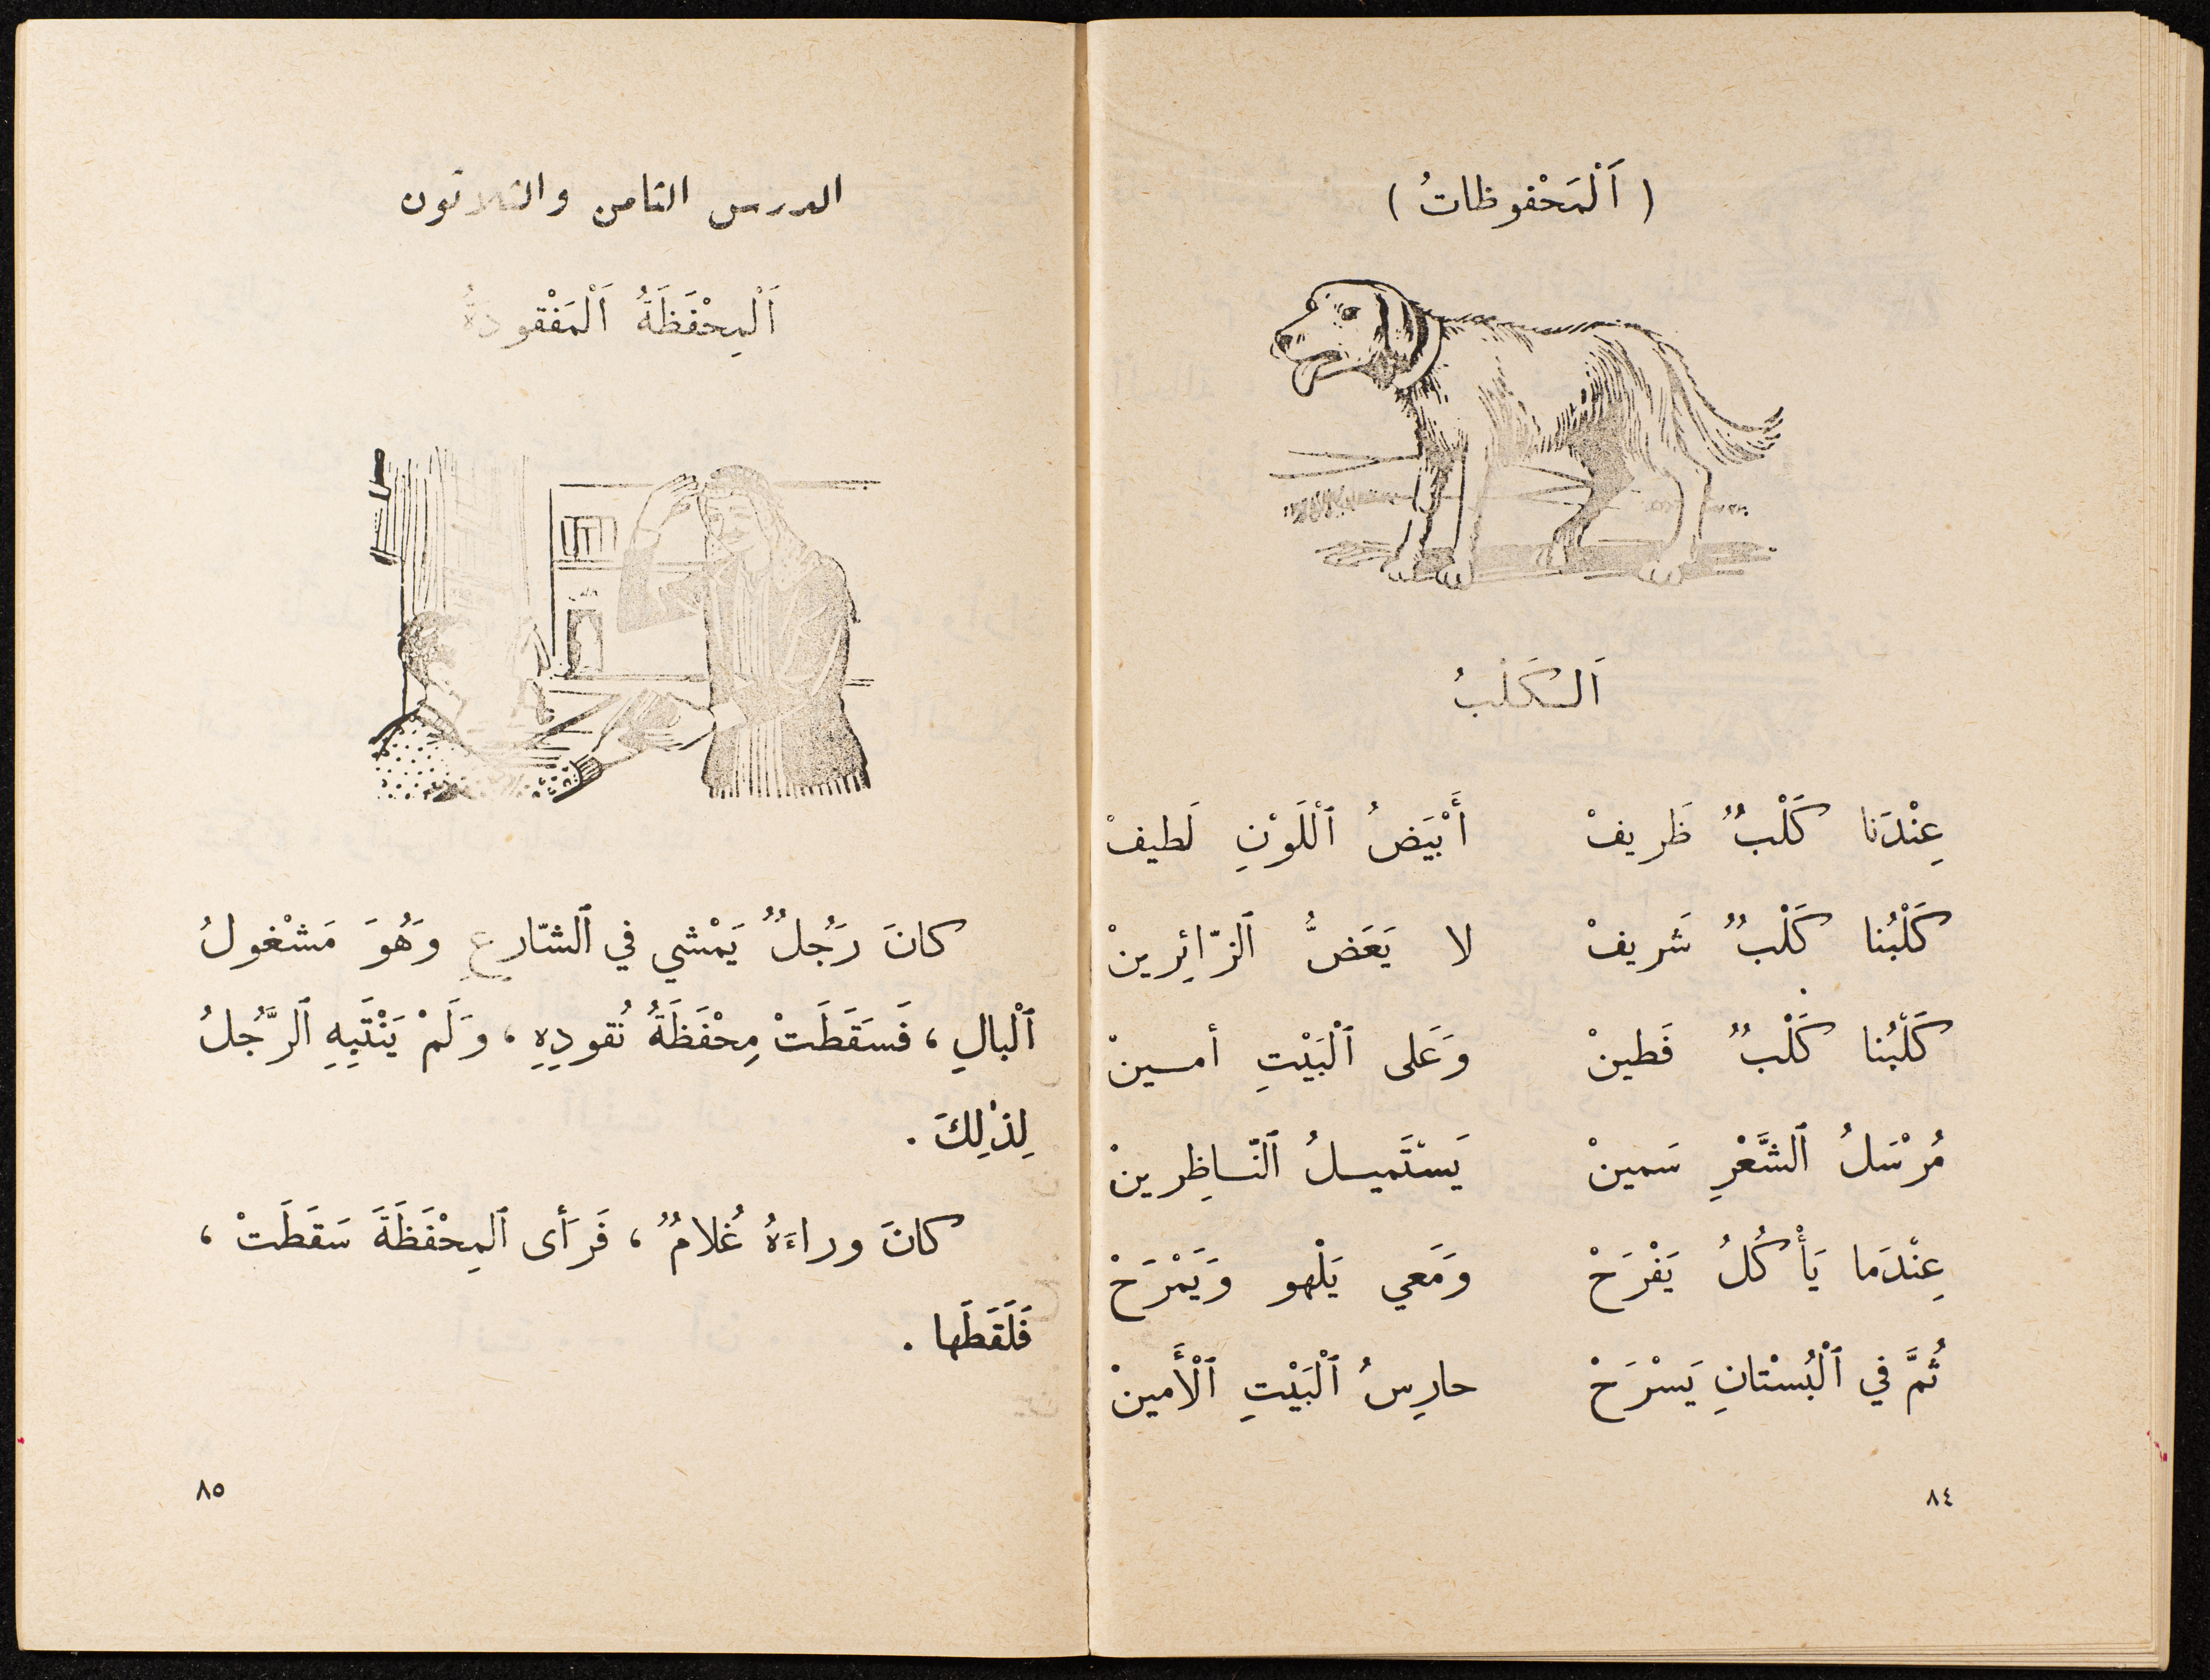 ( اَلْمَحْفوظاتُ )
اَلْكَلْبُ
عِنْدَنا كَلْبٌ ظَريفْ أَبْيَضُ ٱلْلَوْنِ لَطيفْ
كَلْبُنا كَلْبٌ شَريفْ لا يَعَضُّ ٱلزّائِرينْ
كَلْبُنا كَلْبٌ فَطينْ وَعَلى ٱلْبَيْتِ أمـينْ
مُرْسَلُ ٱلشَّعْرِ سَمينْ يَسْتَميـلُ ٱلنّـاظِرينْ
عِنْدَما يَأْكُلُ يَفْرَحْ وَمَعي يَلْهو وَيَمْرَحْ
ثُمَّ في ٱلْبُسْتانِ يَسْرَحْ حارِسُ ٱلْبَيْتِ ٱلْأَمينْ
٨٤
الدرس الثامن والثلاثون
اَلْمِحْفَظَةُ اَلْمَفْقودَةُ
كانَ رَجُلٌ يَمْشي في ٱلشّارِعِ وَهُوَ مَشْغولُ
ٱلْبالِ ، فَسَقَطَتْ مِحْفَظَةُ نُقودِهِ ، وَلَمْ يَنْتَبِهِ ٱلرَّجُلُ
لِذٰلِكَ .
كانَ وراءَهُ غُلامٌ ، فَرَأى ٱلمِحْفَظَةَ سَقَطَتْ ،
فَلَقَطَها .
٨٥